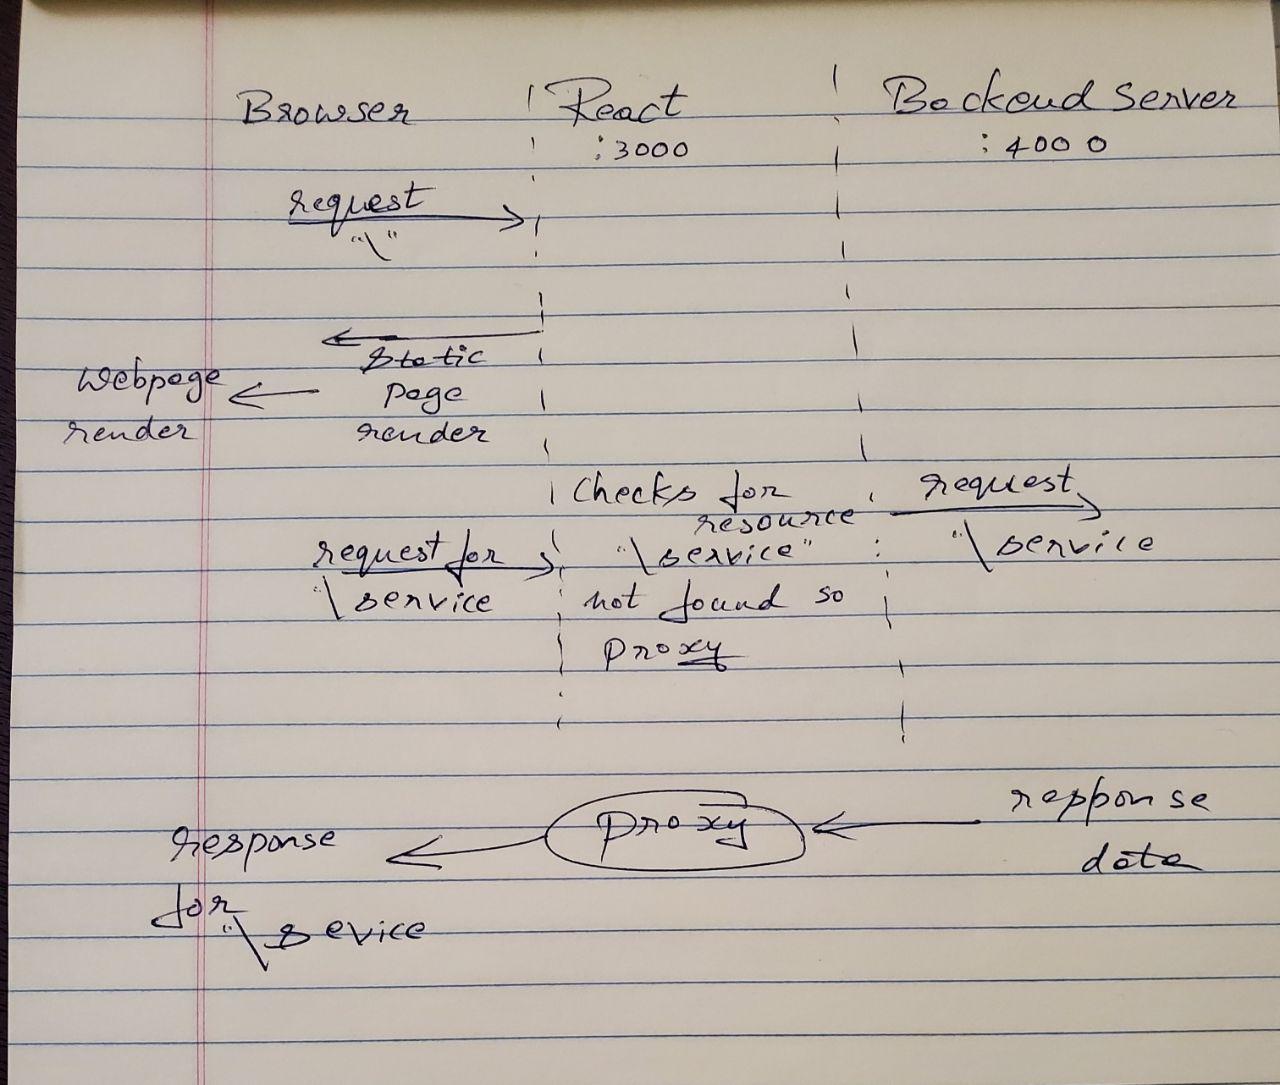 Browser
React
Backend Server
:3000
:4000
request
"\"
static
page
render
webpage
render
checks for
resource
"\service"
not found so
proxy
request
"\service
request for
"\service
response
data
proxy
response
for
"\sevice